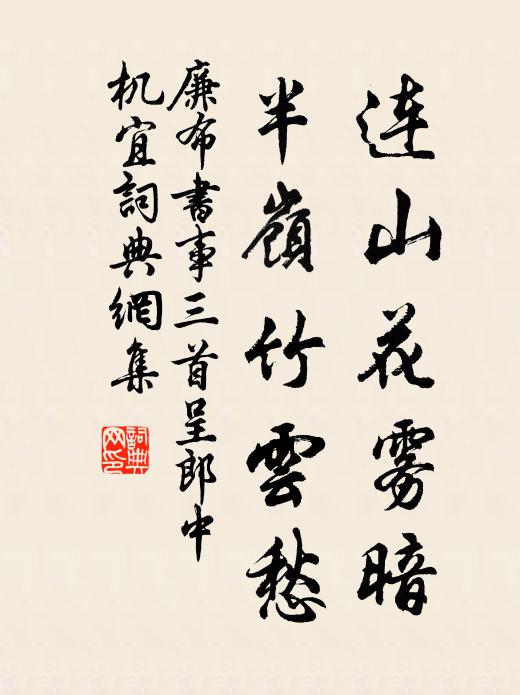 连山花雾暗
半嶺竹雲愁
廉布書事三首呈郎中
机宜詞典網集
詞典网印